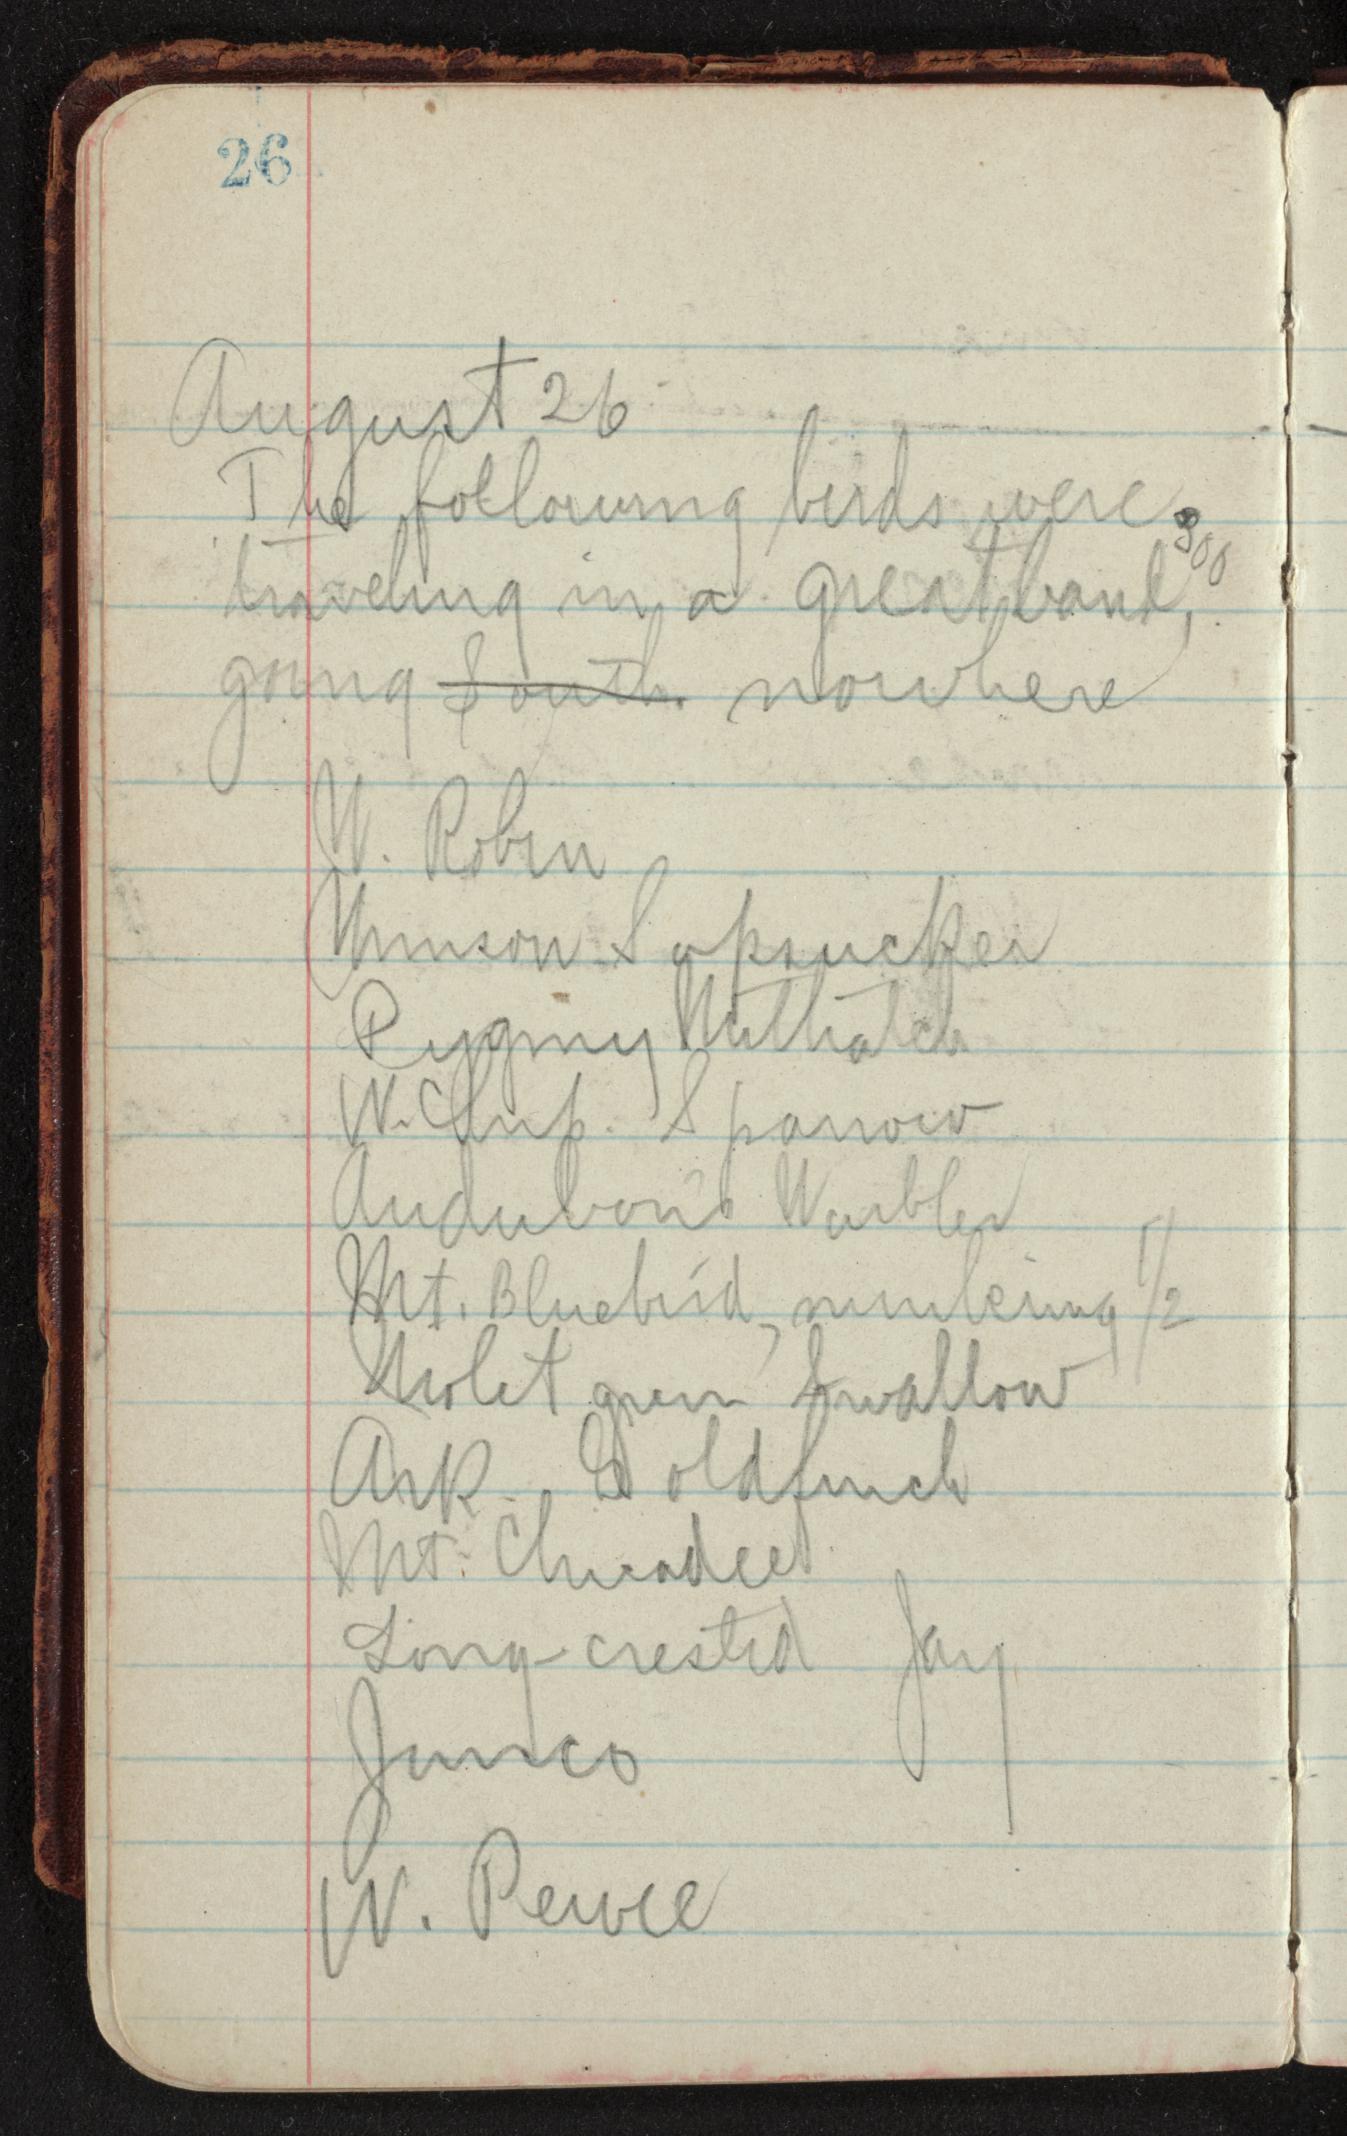 26
August 26
The following birds were
traveling in a great band, 300
going South. nowhere
W. Robin
Wmson Sapsucker
Pygmy Nuthatch
W. Chip. Sparrow
Audubon's Warbler
Mt. Bluebird, numbering 1/2
Violet green Swallow
Ark. Goldfinch
Mt. Chicadee
Long-crested Jay
Junco
W. Pewee